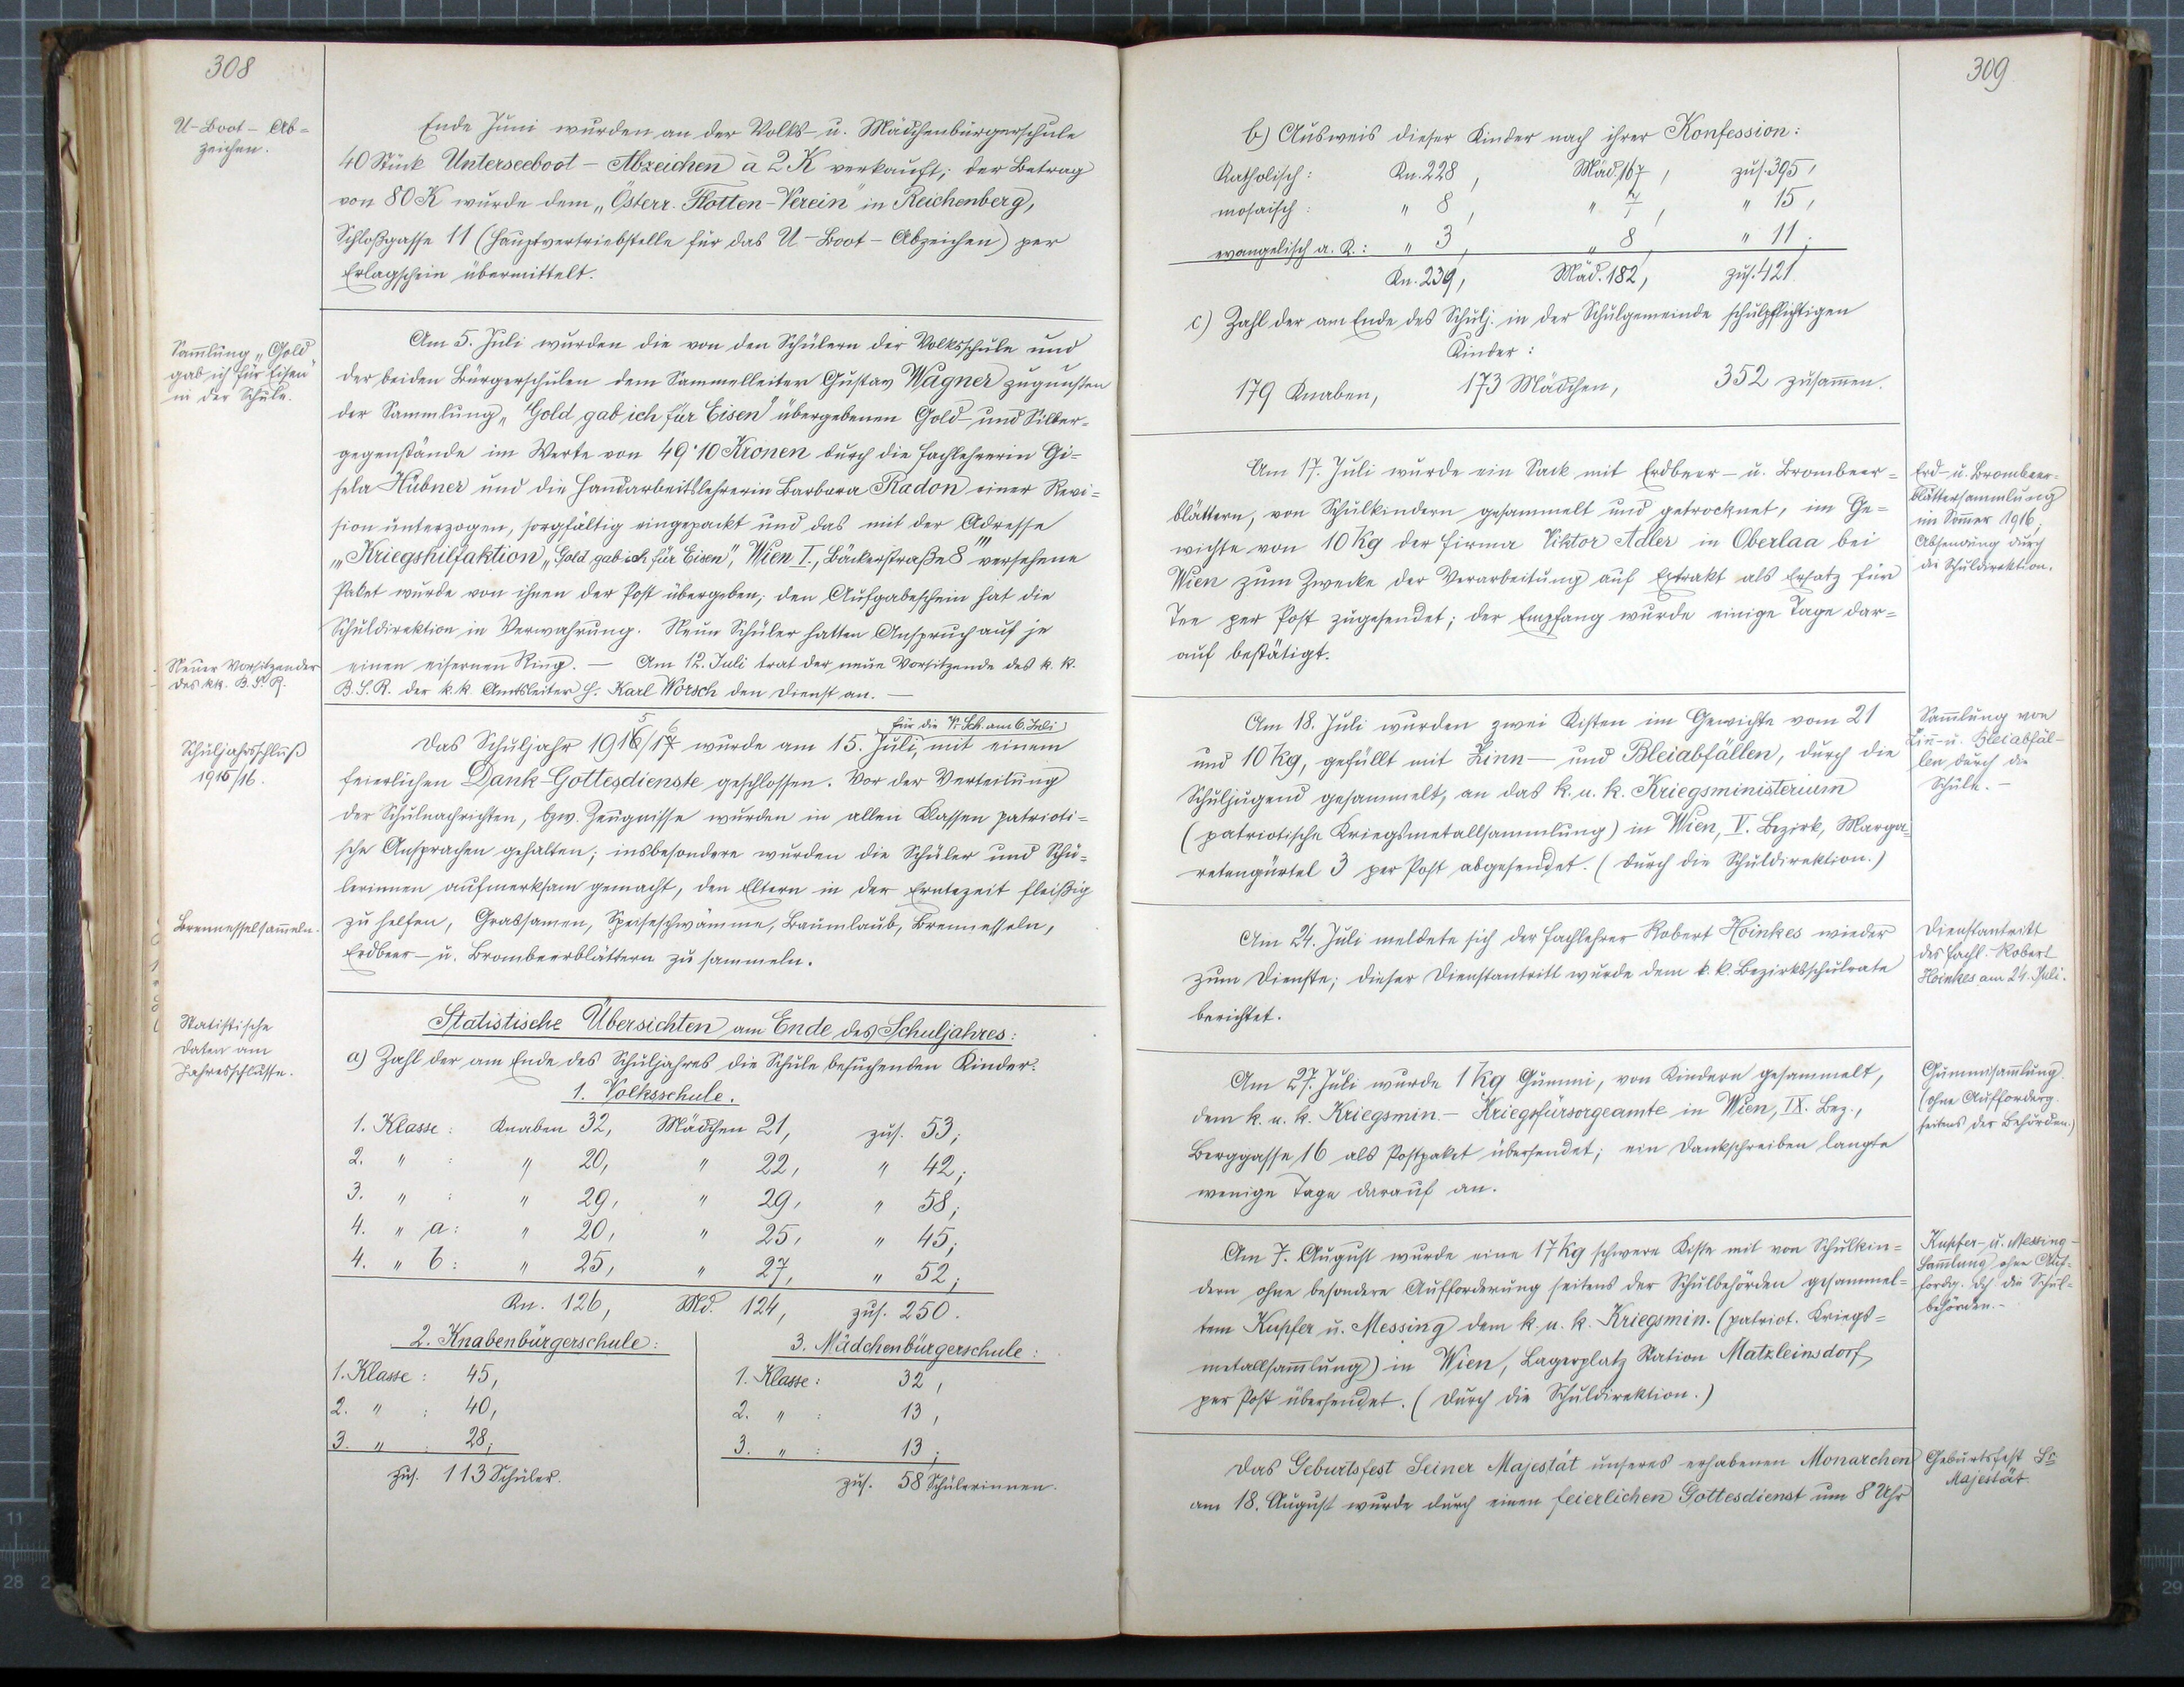 308
U-Boot-Ab=
zeichen.
Ende Juni wurden an der Volks- u. Mädchenbürgerschule
40 Stück Unterseeboot-Abzeichen à 2 K verkauft; der Betrag
von 80 K wurde dem „Österr. Flotten-Verein" in Reichenberg,
Schloßgasse 11 (Hauptvertriebstelle für das U-Boot-Abzeichen) per
Erlagschein übermittelt.
Sam̅lung „Gold
gab ich für Eisen"
in der Schule.
Am 5. Juli wurden die von den Schülern der Volksschule und
der beiden Bürgerschulen dem Sammelleiter Gustav Wagner zugunsten
der Sammlung „Gold gab ich für Eisen" übergebenen Gold- und Silber=
gegenstände im Werte von 49·10 Kronen durch die Fachlehrerin Gi=
sela Hübner und die Handarbeitslehrerin Barbara Radon einer Revi=
sion unterzogen, sorgfältig eingepackt und das mit der Adresse
„Kriegshilfaktion „Gold gab ich für Eisen", Wien I., Bäckerstraße 8" versehene
Paket wurde von ihnen der Post übergeben; den Aufgabeschein hat die
Schuldirektion in Verwahrung. Neun Schüler hatten Anspruch auf je
einen eisernen Ring. — Am 12. Juli trat der neue Vorsitzende des k. k.
B. S. R. der k. k. Amtsleiter H. Karl Worsch den Dienst an. —
Neuer Vorsitzender
des kk. B. S. R.
Schuljahrsschluß
1915/16.
für die V. Sch. am 6. Juli
5 6
Das Schuljahr 1916/17 wurde am 15. Juli, mit einem
feierlichen Dank-Gottesdienste geschlossen. Vor der Verteilung
der Schulnachrichten, bzw. Zeugnisse wurden in allen Klassen patrioti=
sche Ansprachen gehalten; insbesondere wurden die Schüler und Schü=
lerinnen aufmerksam gemacht, den Eltern in der Erntezeit fleißig
zu helfen, Grassamen, Speiseschwämme, Baumlaub, Brennesseln,
Erdbeer- u. Brombeerblättern zu sammeln.
Brennesselsam̅eln.
Statistische
Daten am
Jahresschlusse.
Statistische Übersichten am Ende des Schuljahres:
a) Zahl der am Ende des Schuljahres die Schule besuchenden Kinder:
1. Volksschule.
1. Klasse: Knaben 32, Mädchen 21, zus. 53;
2. " : " 20, " 22, " 42;
3. " : " 29, " 29, " 58;
4. " a: " 20, " 25, " 45;
4. " b: " 25, " 27, " 52;
Kn. 126, Md. 124, zus. 250.
2. Knabenbürgerschule:
1. Klasse: 45,
2. " : 40,
3. " : 28;
zus. 113 Schüler.
3. Mädchenbürgerschule:
1. Klasse: 32,
2. " : 13,
3. " : 13;
zus. 58 Schülerinnen.
309
b) Ausweis dieser Kinder nach ihrer Konfession:
Katholisch: Kn. 228, Mäd. 167, zus. 395,
mosaisch: " 8, " 7, " 15,
evangelisch a. K.: " 3, " 8, " 11;
Kn. 239, Mäd. 182, zus. 421.
c) Zahl der am Ende des Schulj. in der Schulgemeinde schulpflichtigen
Kinder:
179 Knaben, 173 Mädchen, 352 zusam̅en.
Am 17. Juli wurde ein Sack mit Erdbeer- u. Brombeer=
blättern, von Schulkindern gesammelt und getrocknet, im Ge=
wichte von 10 Kg der Firma Viktor Adler in Oberlaa bei
Wien zum Zwecke der Verarbeitung auf Extrakt als Ersatz für
Tee per Post zugesendet; der Empfang wurde einige Tage dar=
auf bestätigt.
Erd- u. Brombeer=
blättersammlung
im Som̅er 1916;
Absendung durch
die Schuldirektion.
Am 18. Juli wurden zwei Kisten im Gewichte vom 21
und 10 Kg, gefüllt mit Zinn- und Bleiabfällen, durch die
Schuljugend gesammelt, an das k. u. k. Kriegsministerium
(patriotische Kriegsmetallsammlung) in Wien, V. Bezirk, Marga=
retengürtel 3 per Post abgesendet. (Durch die Schuldirektion.)
Sam̅lung von
Zin̅- u. Bleiabfäl-
len durch die
Schule. —
Am 24. Juli meldete sich der Fachlehrer Robert Hoinkes wieder
zum Dienste; dieser Dienstantritt wurde dem k. k. Bezirksschulrate
berichtet.
Dienstantritt
des Fachl. Robert
Hoinkes am 24. Juli.
Am 27. Juli wurde 1 Kg Gummi, von Kindern gesammelt,
dem k. u. k. Kriegsmin.- Kriegsfürsorgeamte in Wien, IX. Bez.,
Berggasse 16 als Postpaket übersendet; ein Dankschreiben langte
wenige Tage darauf an.
Gummisam̅lung.
(ohne Aufforderg.
seitens der Behörden.)
Am 7. August wurde eine 17 Kg schwere Kiste mit von Schulkin=
dern ohne besondere Aufforderung seitens der Schulbehörden gesammel=
tem Kupfer u. Messing dem k. u. k. Kriegsmin. (patriot. Kriegs=
metallsam̅lung) in Wien, Lagerplatz Station Matzleinsdorf,
per Post übersendet. (Durch die Schuldirektion.)
Kupfer- u. Messing-
Sam̅lung ohne Auf-
fordg. dch die Schul-
behörden. -
Das Geburtsfest Seiner Majestät unseres erhabenen Monarchen
am 18. August wurde durch einen feierlichen Gottesdienst um 8 Uhr
Geburtsfest Sr.
Majestät.
11
28
29